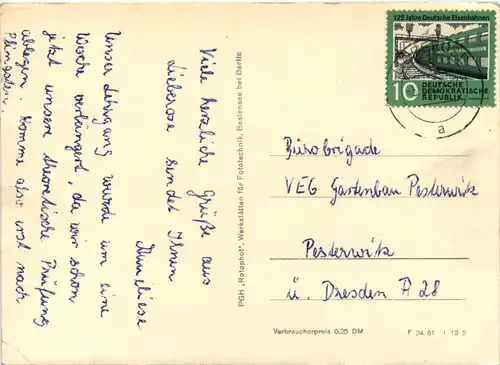 Viele herzliche Grüße aus
Lieberose sendet Ihnen
Anneliese
Unser Lehrgang wurde um eine
Woche verlängert, da wir schon
jetzt unsere theoretische Prüfung
ablegen. Komme also erst nach
Pfingsten.
PGH „Rotophot", Werkstätten für Fototechnik, Bestensee bei Berlin
125 Jahre Deutsche Eisenbahnen
10
DEUTSCHE
DEMOKRATISCHE
REPUBLIK
a
Bürobrigade
VEG Gartenbau Pesterwitz
Pesterwitz
ü. Dresden A 28
Verbraucherpreis 0,25 DM
F 34 61 1 12 5